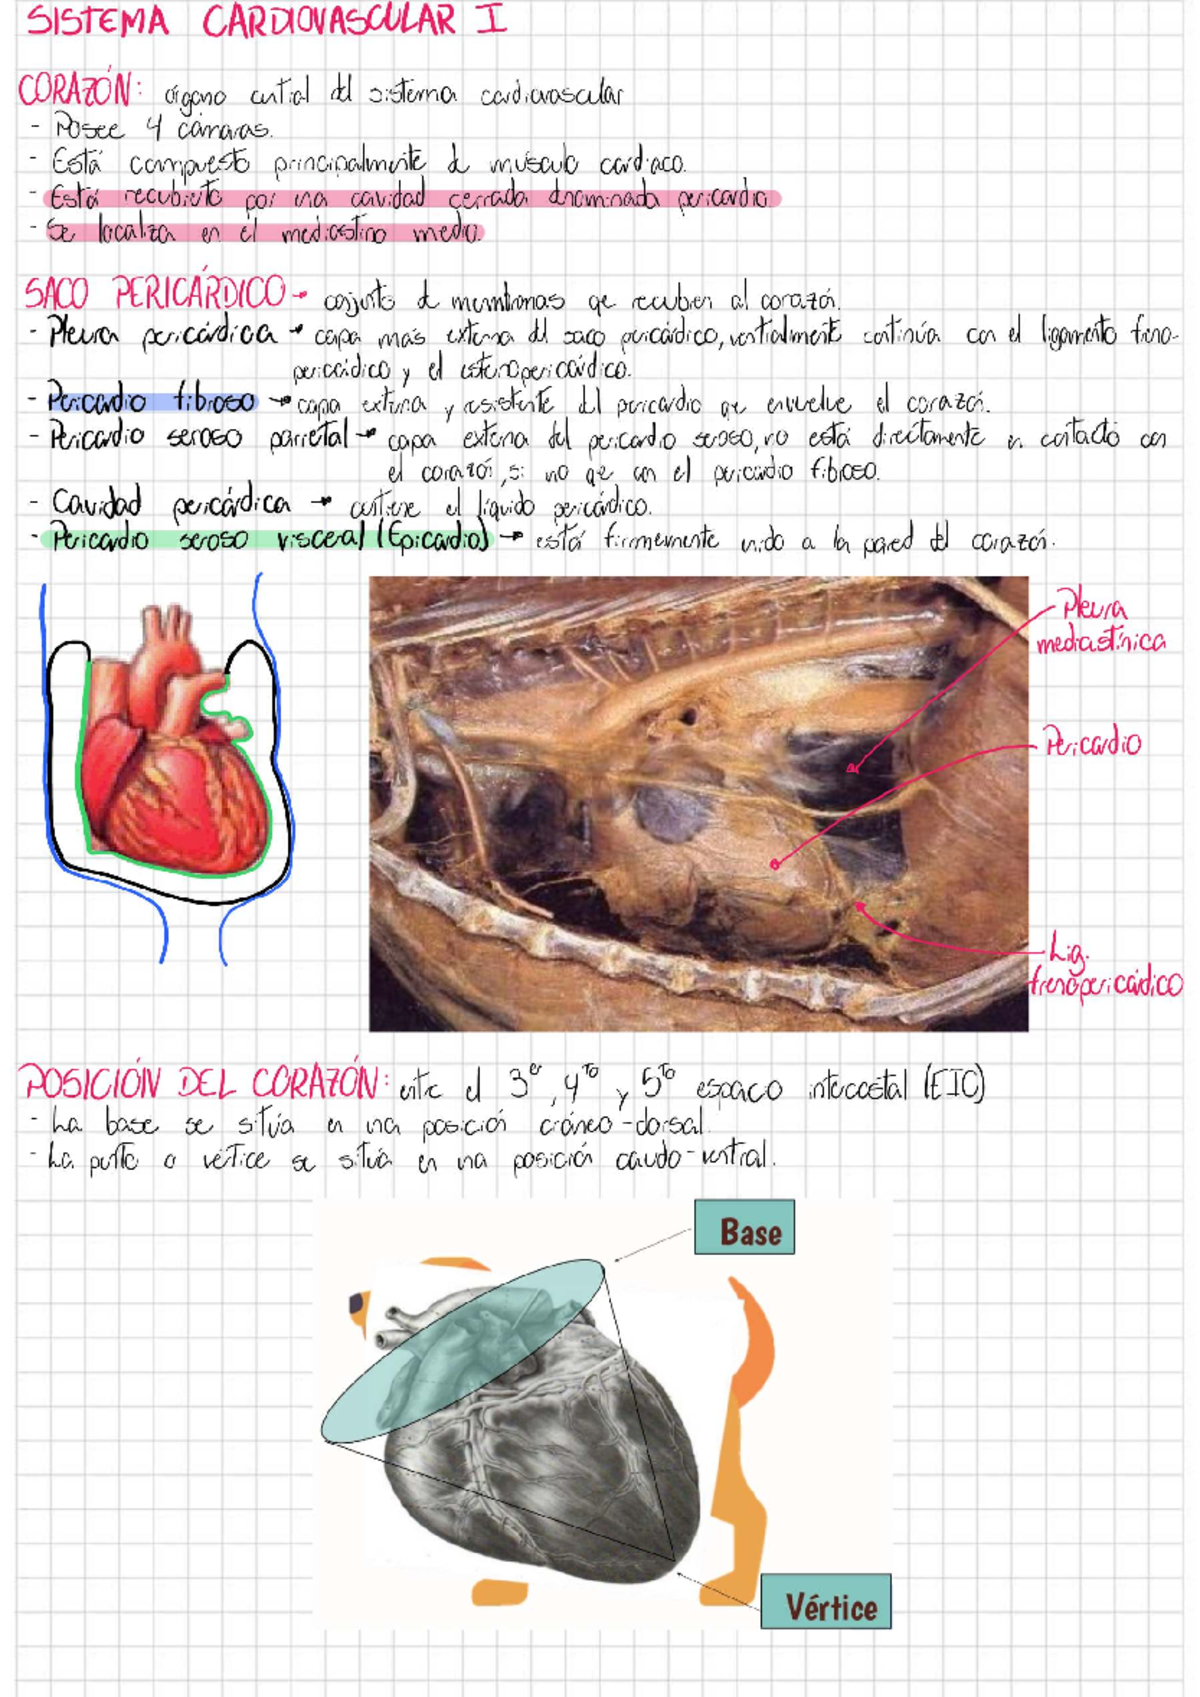 SISTEMA CARDIOVASCULAR I
CORAZÓN: órgano central del sistema cardiovascular
- Posee 4 cámaras.
- Está compuesto principalmente de músculo cardiaco.
- Está recubierto por una cavidad cerrada denominada pericardio
- Se localiza en el mediastino medio.
SACO PERICÁRDICO → conjunto de membranas que recuben al corazón.
- Pleura pericárdica → capa más externa del saco pericárdico, ventralmente continúa con el ligamento freno-
pericárdico y el esternopericárdico.
- Pericardio fibroso → capa externa y resistente del pericardio que envuelve el corazón.
- Pericardio seroso parietal → capa externa del pericardio seroso, no está directamente en contacto con
el corazón, si no que con el pericardio fibroso.
- Cavidad pericárdica → contiene el líquido pericárdico.
- Pericardio seroso visceral (Epicardio) → está firmemente unido a la pared del corazón.
Pleura
mediastínica
Pericardio
Lig.
frenopericárdico
POSICIÓN DEL CORAZÓN: entre el 3er, 4to y 5to espacio intercostal (EIC)
- La base se sitúa en una posición cráneo-dorsal.
- La punta o vértice se sitúa en una posición caudo-ventral.
Base
Vértice